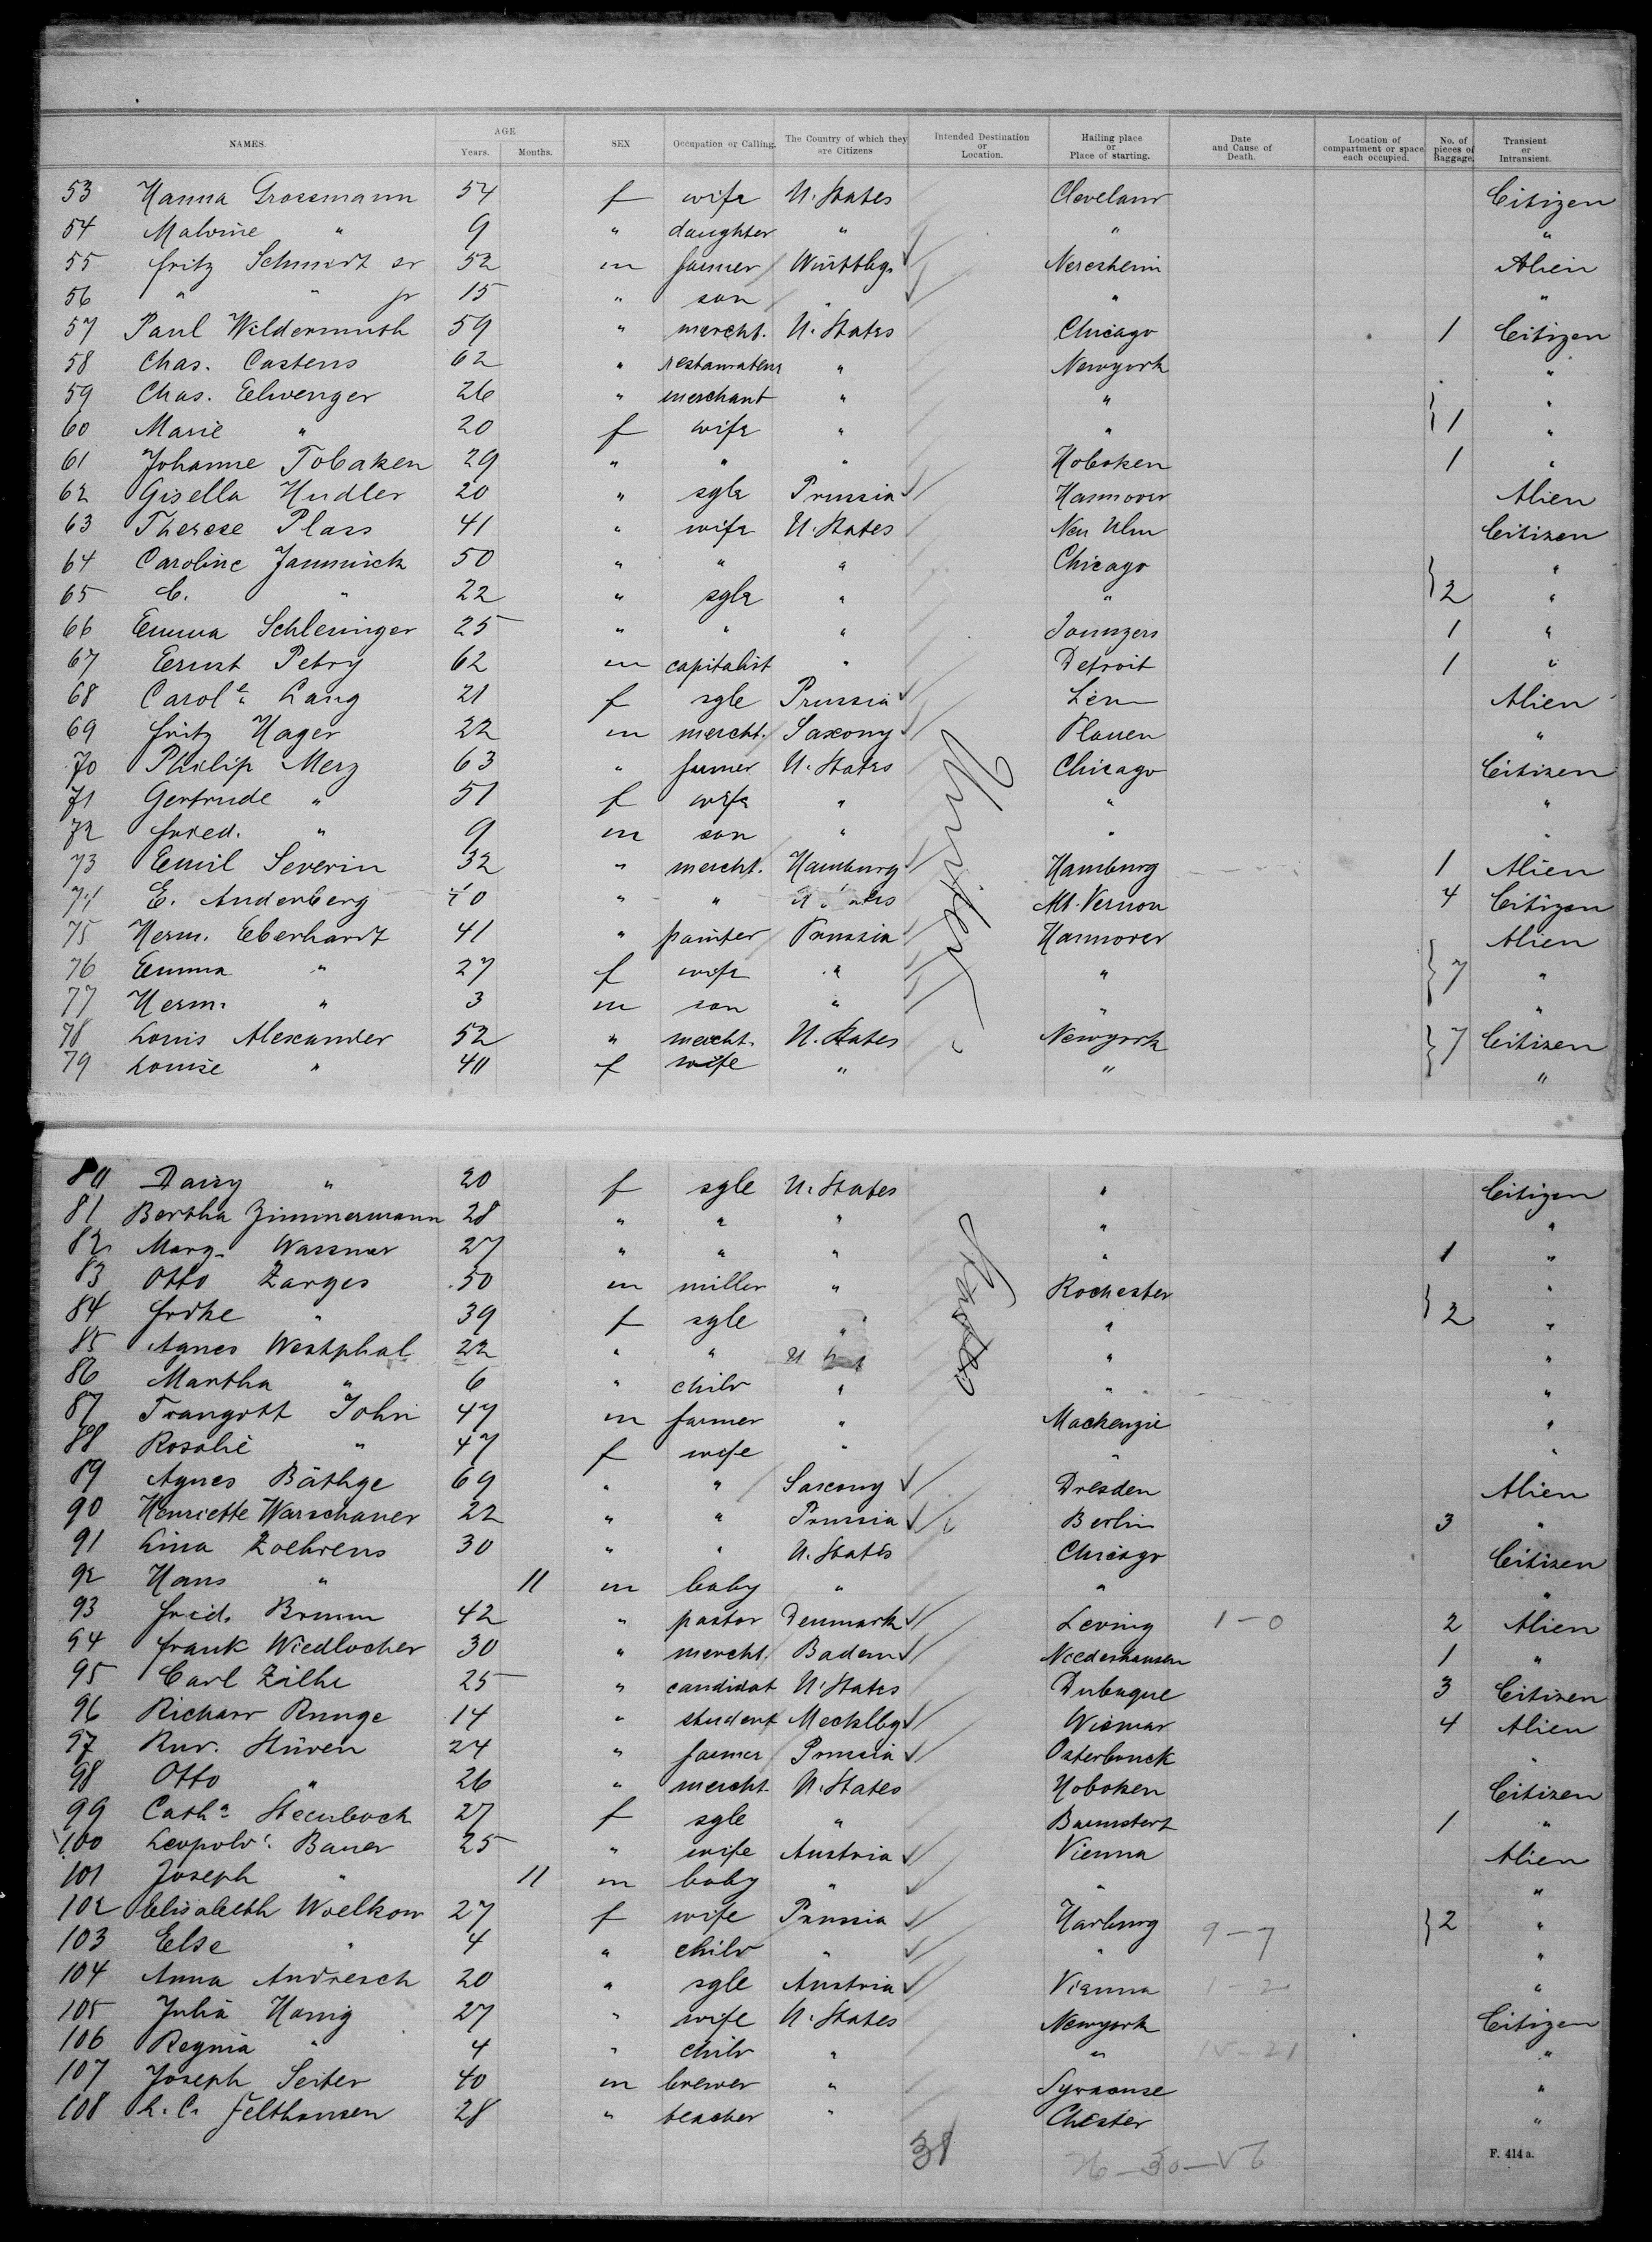 NAMES. AGE Years. Months. SEX Occupation or Calling. The Country of which they are Citizens Intended Destination or Location. Hailing place or Place of starting. Date and Cause of Death. Location of compartment or space each occupied. No. of pieces of Baggage. Transient or Intransient.
53 Hanna Grossmann 54 f wife U. States Cleveland Citizen
54 Malvine " 9 " daughter " " "
55 Fritz Schmidt sr 52 m farmer Württbg. Neresheim Alien
56 " " jr 15 " son " " "
57 Paul Wildermuth 59 " mercht. U. States Chicago 1 Citizen
58 Chas. Castens 62 " restaurateur " Newyork "
59 Chas. Eelwenger 26 " merchant " " "
60 Marie " 20 f wife " " 1 "
61 Johanne Tobaken 29 " " " Hoboken 1 "
62 Gisella Hudler 20 " sgle Prussia Hannover Alien
63 Therese Plass 41 " wife U. States New Ulm Citizen
64 Caroline Jannnick 50 " " " Chicago "
65 C. " 22 " sgle " " 2 "
66 Emma Schleninger 25 " " " 1 "
67 Ernst Petry 62 m capitalist " Detroit 1 "
68 Carole. Lang 21 f sgle Prussia Alien
69 Fritz Hager 22 m mercht. Saxony Plauen "
70 Philip Merz 63 " farmer U. States Chicago Citizen
71 Gertrude " 51 f wife " " "
72 Fried. " 9 m son " " "
73 Emil Severin 32 " mercht. Hamburg Hamburg 1 Alien
74 E. Anderberg 40 " " U. States Mt. Vernon 4 Citizen
75 Herm. Eberhardt 41 " painter Prussia Hannover Alien
76 Emma " 27 f wife " " 7 "
77 Herm. " 3 m son " " "
78 Louis Alexander 52 " mercht. U. States Newyork 7 Citizen
79 Louise " 40 f wife " " "
United
80 Daisy " 20 f sgle U. States " Citizen
81 Bertha Zimmermann 28 " " " " "
82 Marg. Wassmer 27 " " " " 1 "
83 Otto Zarges 50 m miller " Rochester "
84 Frdke " 39 f sgle " " 2 "
85 Agnes Westphal 22 " " U " "
86 Martha " 6 " child " " "
87 Traugott John 47 m farmer " Mackenzie "
88 Rosalie " 47 f wife " " "
89 Agnes Bäthge 69 " " Saxony Dresden Alien
90 Henriette Warschauer 22 " " Prussia Berlin 3 "
91 Lina Zoehrens 30 " " U. States Chicago Citizen
92 Hans " 11 m baby " " "
93 Fried. Brumm 42 " pastor Denmark Leving 1-0 2 Alien
94 Frank Wiedlocher 30 " mercht. Baden Niederhausen 1 "
95 Carl Zilhe 25 " candidat U. States Dubuque 3 Citizen
96 Richard Runge 14 " student Mecklbg Wismar 4 Alien
97 Rud. Stüven 24 " farmer Prussia Osterbruck "
98 Otto " 26 " mercht. U. States Hoboken Citizen
99 Catha. Steinbock 27 f sgle " 1 "
100 Leopold. Bauer 25 " wife Austria Vienna Alien
101 Joseph " 11 m baby " " "
102 Elisabeth Woelkow 27 f wife Prussia Harburg 2 "
103 Else " 4 " child " " 9-7 "
104 Anna Andresch 20 " sgle Austria Vienna 1-2 "
105 Julia Honig 27 " wife U. States Newyork Citizen
106 Regina " 4 " child " " 15-21 "
107 Joseph Seiter 40 m brewer " Syracuse "
108 L. C. Felthousen 28 " teacher " Chester "
States
38
F. 414 a.